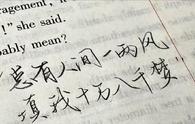 ragement," a
!" she said.
bably mean?
总有人间一两风
填我十万八千梦